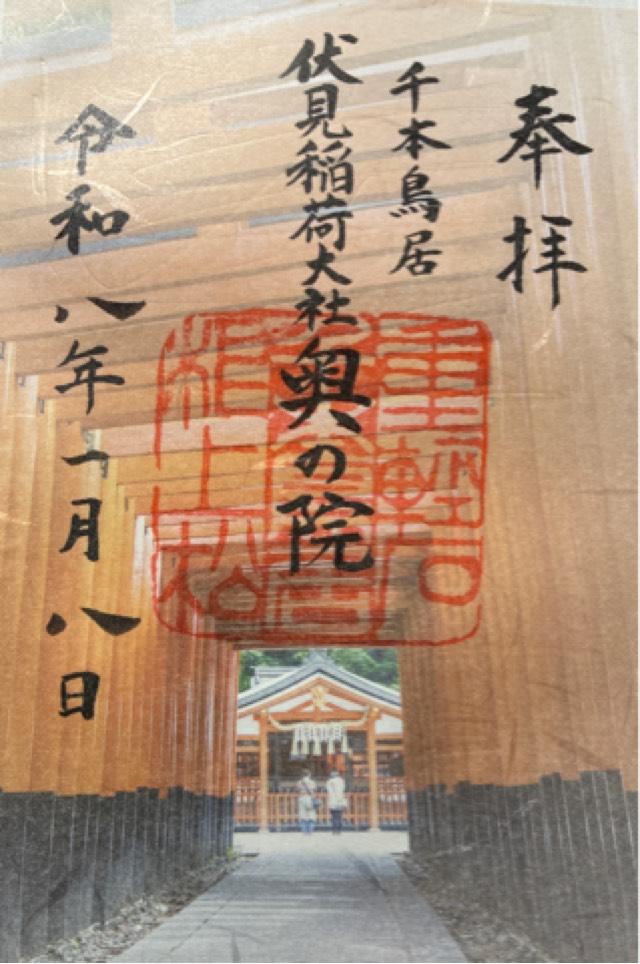 奉拝
千本鳥居
伏見稲荷大社奥の院
令和八年一月八日